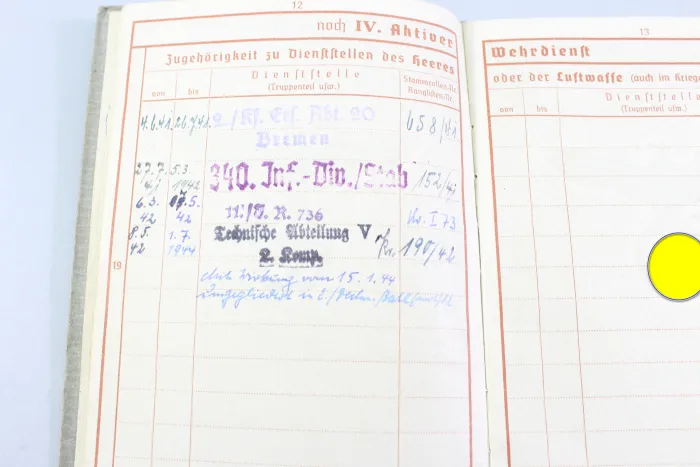 12
noch IV. Aktiver
Zugehörigkeit zu Dienststellen des Heeres
von
bis
Dienststelle
(Truppenteil usw.)
Stammrollen-Nr.
Ranglisten-Nr.
4.6.41. 26.7.41. 2./Kf. Ers. Abt. 20
Bremen
658/41
27.7. 5.3
41 1942
340. Inf.-Div./Stab
152/41
6.3. 7.5.
42 42
11./I. R. 736
I 73
8.5. 1.7.
42 1944
Technische Abteilung V
2. Komp.
Kr. 190/42
19
vom 15.1.44
umgegliedert in
13
Wehrdienst
oder der Luftwaffe (auch im Kriege
von
bis
Dienststelle
(Truppenteil usw.)